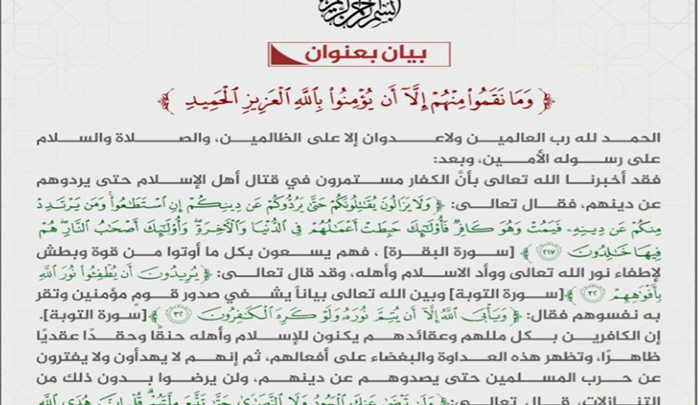 بسم الله الرحمن الرحيم
بيان بعنوان
﴿ وَمَا نَقَمُوا مِنْهُمْ إِلَّا أَن يُؤْمِنُوا بِاللَّهِ الْعَزِيزِ الْحَمِيدِ ﴾
الحمد لله رب العالمين ولاعدوان إلا على الظالمين، والصلاة والسلام
على رسوله الأمين، وبعد:
فقد أخبرنا الله تعالى بأنَّ الكفار مستمرون في قتال أهل الإسلام حتى يردوهم
عن دينهم، فقال تعالى: ﴿ وَلَا يَزَالُونَ يُقَاتِلُونَكُمْ حَتَّىٰ يَرُدُّوكُمْ عَن دِينِكُمْ إِنِ اسْتَطَاعُوا وَمَن يَرْتَدِدْ
مِنكُمْ عَن دِينِهِ فَيَمُتْ وَهُوَ كَافِرٌ فَأُولَٰئِكَ حَبِطَتْ أَعْمَالُهُمْ فِي الدُّنْيَا وَالْآخِرَةِ وَأُولَٰئِكَ أَصْحَابُ النَّارِ هُمْ
فِيهَا خَالِدُونَ ٢١٧ ﴾ [سورة البقرة] ، فهم يسعون بكل ما أوتوا من قوة وبطش
لإطفاء نور الله تعالى ووأد الاسلام وأهله، وقد قال تعالى: ﴿ يُرِيدُونَ أَن يُطْفِئُوا نُورَ اللَّهِ
بِأَفْوَاهِهِمْ ٣٢ ﴾ [سورة التوبة] وبين الله تعالى بياناً يشفي صدور قومٍ مؤمنين وتقر
به نفوسهم فقال: ﴿ وَيَأْبَى اللَّهُ إِلَّا أَن يُتِمَّ نُورَهُ وَلَوْ كَرِهَ الْكَافِرُونَ ٣٢ ﴾ [سورة التوبة].
إن الكافرين بكل مللهم وعقائدهم يكنون للإسلام وأهله حنقًا وحقدًا عقديًا
ظاهرًا، وتظهر هذه العداوة والبغضاء على أفعالهم، ثم إنهم لا يهدأون ولا يفترون
عن حرب المسلمين حتى يصدوهم عن دينهم، ولن يرضوا بدون ذلك من
التنازلات، قال تعالى: ﴿ وَلَن تَرْضَىٰ عَنكَ الْيَهُودُ وَلَا النَّصَارَىٰ حَتَّىٰ تَتَّبِعَ مِلَّتَهُمْ قُلْ إِنَّ هُدَى اللَّهِ